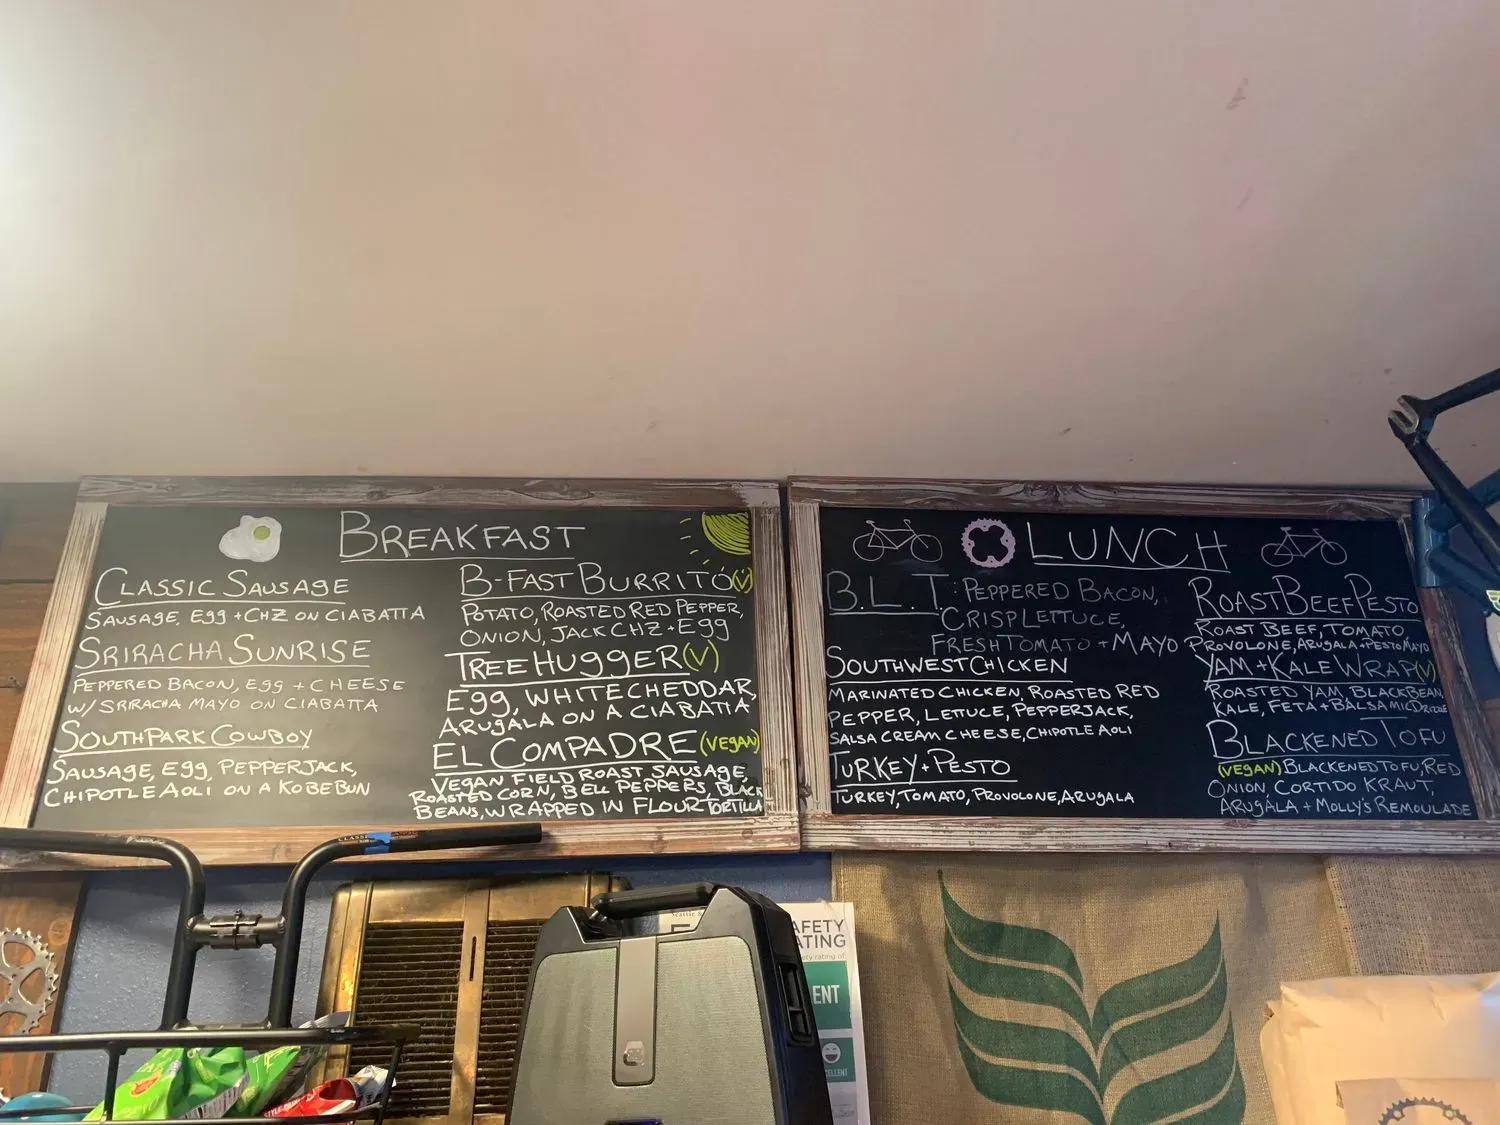 BREAKFAST
CLASSIC SAUSAGE
SAUSAGE, EGG + CHZ ON CIABATTA
SRIRACHA SUNRISE
PEPPERED BACON, EGG + CHEESE
W/ SRIRACHA MAYO ON CIABATTA
SOUTHPARK COWBOY
SAUSAGE, EGG, PEPPERJACK,
CHIPOTLE AOLI ON A KOBE BUN
B-FAST BURRITO (V)
POTATO, ROASTED RED PEPPER,
ONION, JACK CHZ + EGG
TREE HUGGER (V)
EGG, WHITE CHEDDAR,
ARUGALA ON A CIABATTA
EL COMPADRE (VEGAN)
VEGAN FIELD ROAST SAUSAGE,
ROASTED CORN, BELL PEPPERS, BLACK
BEANS, WRAPPED IN FLOUR TORTILLA
LUNCH
B.L.T: PEPPERED BACON,
CRISP LETTUCE,
FRESH TOMATO + MAYO
SOUTHWEST CHICKEN
MARINATED CHICKEN, ROASTED RED
PEPPER, LETTUCE, PEPPERJACK,
SALSA CREAM CHEESE, CHIPOTLE AOLI
TURKEY + PESTO
TURKEY, TOMATO, PROVOLONE, ARUGALA
ROAST BEEF PESTO
ROAST BEEF, TOMATO,
PROVOLONE, ARUGALA + PESTO MAYO
YAM + KALE WRAP (V)
ROASTED YAM, BLACK BEAN
KALE, FETA + BALSAMIC DRIZZLE
BLACKENED TOFU
(VEGAN) BLACKENED TOFU, RED
ONION, CORTIDO KRAUT,
ARUGALA + MOLLY'S REMOULADE
Seattle &
AFETY
ATING
ety rating of
ENT
CELLENT